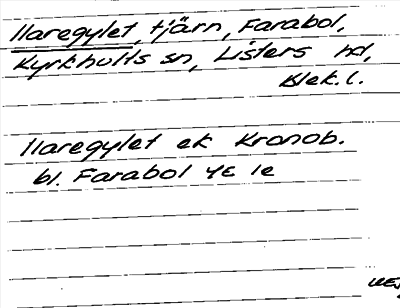 Ilaregylet, tjärn, Farabol,
Kyrkhults sn, Listers hd,
Blek. l.
Ilaregylet ek Kronob.
bl. Farabol 4E 1e